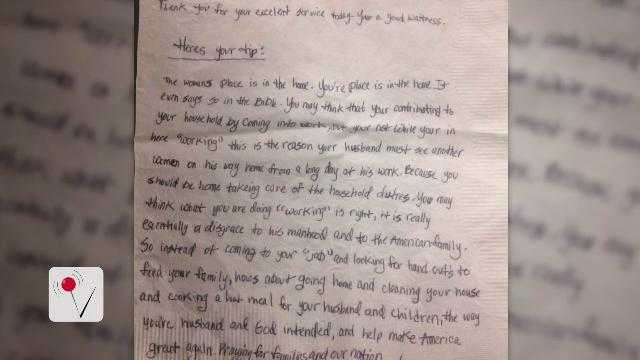 Thank you for your excelent service today. Your a good waitress.
Heres your tip:
The womans place is in the home. You're place is in the home. It
even says so in the Bible. You may think that your contributing to
your household by coming into work, but your not. While your in
here "working" this is the reason your husband must see another
women on his way home from a long day at his work. Because you
should be home takeing care of the household duties. You may
think what you are doing "working" is right, it is really
essentially a disgrace to his manhood and to the American family.
So instead of coming to your "job" and looking for hand outs to
feed your family, hows about going home and cleaning your house
and cooking a hot meal for your husband and children, the way
you're husband and God intended, and help make America
great again. Praying for families and our nation